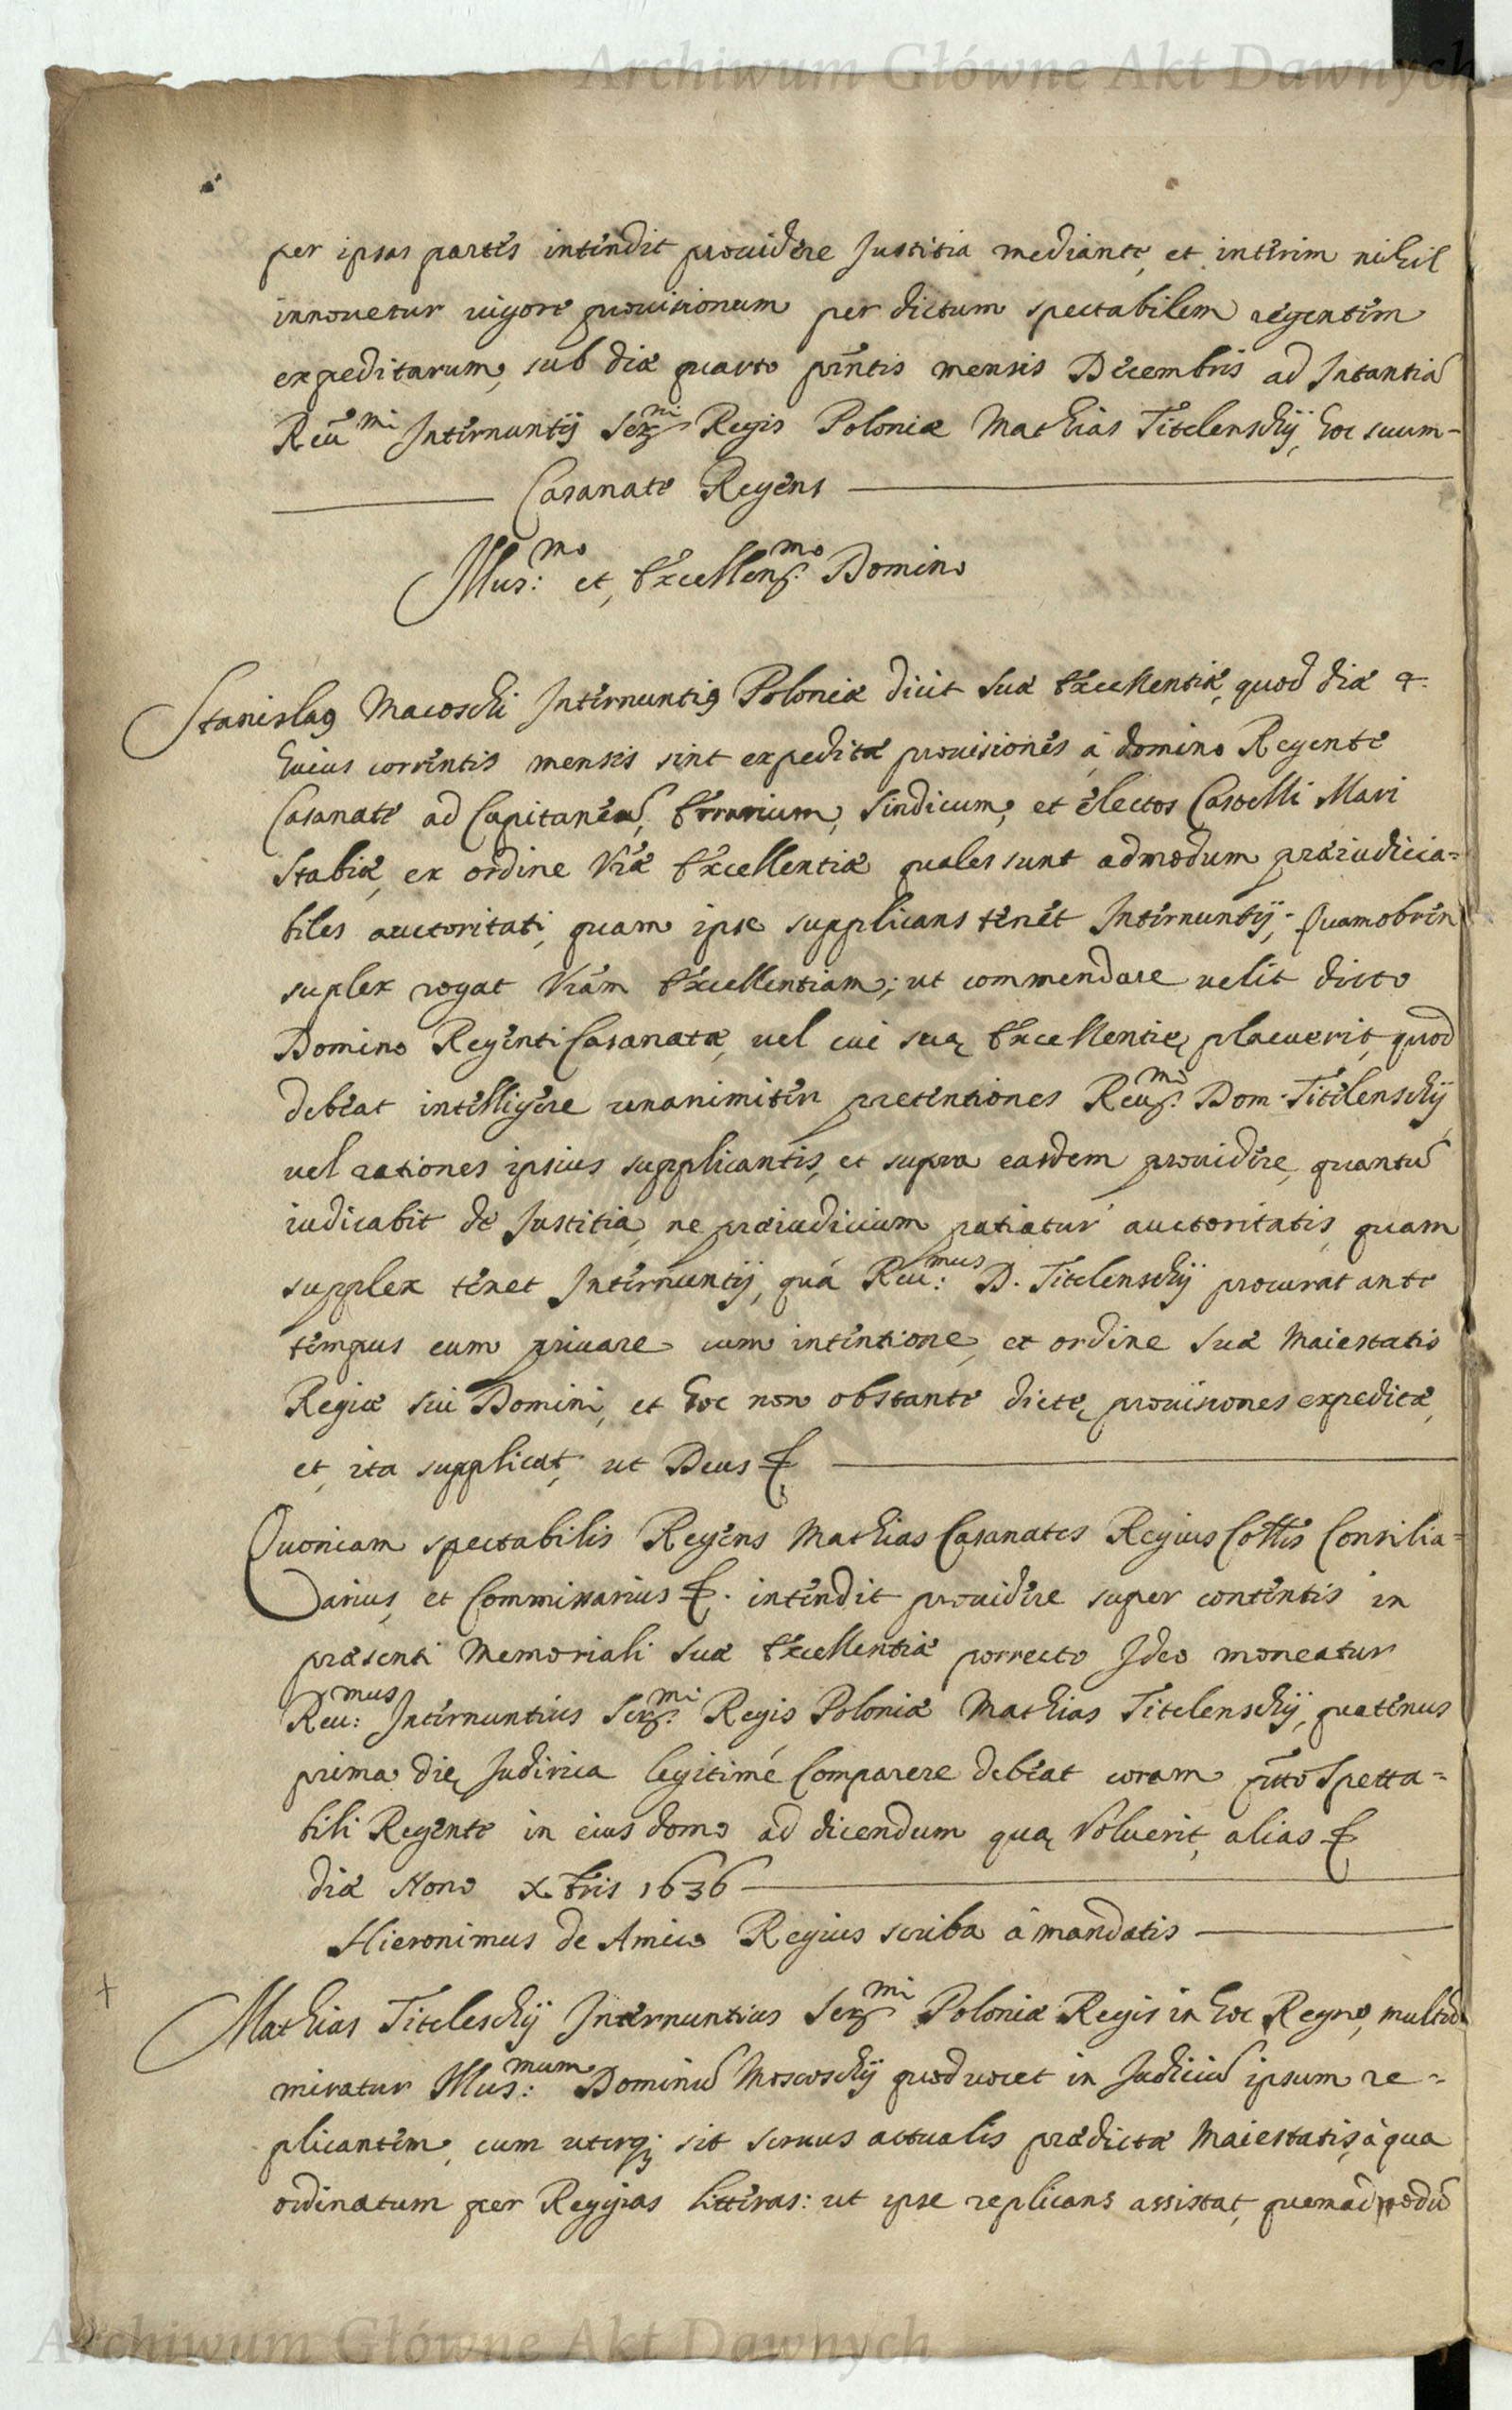 Archiwum Główne Akt Dawnych
per ipsas partes intendit prouidere Justitia mediante, et interim nihil
innouetur uigore prouisionum per dictum spectabilem regentem
expeditarum, sub die quarto pñtis mensis Decembris ad Intantiã
Reũ mi Internuntij Ser mi Regis Poloniæ Mathias Titelenschij, hoc suum-
Casanate Regens
Illus: mo et, Excellens. mo Domino
Stanislaꝰ Macoschi Internuntiꝰ Poloniæ dicit suæ Excellentiæ, quod die 4.
huius correntis mensis sint expeditæ prouisiones á domino Regente
Casanate ad Capitaneũ, Errarium, Sindicum, et electos Castelli Mari
Stabiæ, ex ordine Vræ Excellentiæ quales sunt admodum præiudicia=
biles auctoritati, quam ipse supplicans tenet Internuntij; Quamobren
suplex rogat Vrãm Excellentiam; ut commendare uelit dicto
Domino Regenti Casanatæ, uel cui suę Excellentię placuerit, quod
debeat intelligere unanimiter pretentiones Reuᵃ. mi Dom. Titelenschij
uel rationes ipsius supplicantis, et supra easdem prouidere, quantũ
iudicabit de Justitia, ne præiudicium patiatur auctoritatis, quam
supplex tenet Internuntij, quá Reu: mus D. Titelenschij procurat ante
tempus eum priuare cum intentione, et ordine suæ Maiestatis
Regiæ sui Domini, et hoc non obstante dictę prouisiones expeditæ,
et, ita supplicat, ut Deus &
Quoniam spectabilis Regens Mathias Casanates Regius Collis Consilia=
arius, et Commissarius &. intendit prouidere super contentis in
præsenti Memoriali suæ Excellentiæ porrecto Ideo moneatur
Reu: mus Internuntius Ser. mi Regis Poloniæ Mathias Titelenschij, quatenus
prima dię Judirica legitimé Comparere debeat coram Spetta=
bili Regente in eius domo ad dicendum quę Voluerit, alias &
die Nono Xbris 1636
Hieronimus de Amico Regius scriba á mandatis
+
Mathias Titeleschij Internuntius Ser mi Poloniæ Regis in hoc Regno, multũ
miratur Illus: mum Dominũ Moscoschij quod uocet in Judiciũ ipsum re=
plicantem, cum uterqꝫ sit seruus actualis prædictæ Maiestatis, à qua
ordinatum per Regias litteras: ut ipse replicans assistat, quemad modũ
Archiwum Główne Akt Dawnych